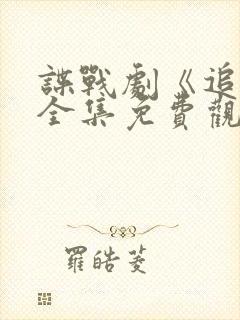 諜戰劇《追
全集免費觀
羅皓菱